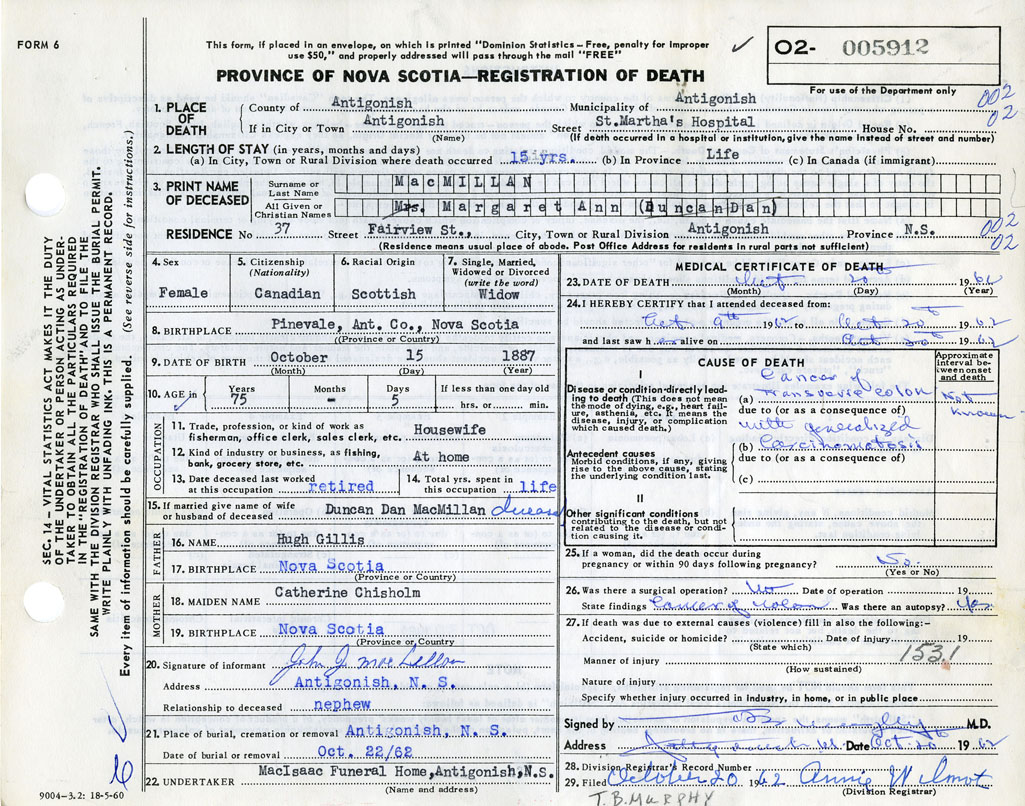 FORM 6
This form, if placed in an envelope, on which is printed "Dominion Statistics – Free, penalty for improper
use $50," and properly addressed will pass through the mail "FREE"
✓
02- 005912
PROVINCE OF NOVA SCOTIA—REGISTRATION OF DEATH
For use of the Department only
002
02
1. PLACE OF DEATH
County of Antigonish Municipality of Antigonish
If in City or Town Antigonish Street St.Martha's Hospital House No.
(Name) (If death occurred in a hospital or institution, give the name instead of street and number)
2. LENGTH OF STAY (in years, months and days)
(a) In City, Town or Rural Division where death occurred 15 yrs. (b) In Province Life (c) In Canada (if immigrant)
3. PRINT NAME OF DECEASED
Surname or Last Name MacMILLAN
All Given or Christian Names Mrs. Margaret Ann (DuncanDan)
RESIDENCE No 37 Street Fairview St., City, Town or Rural Division Antigonish Province N.S.
002
02
(Residence means usual place of abode. Post Office Address for residents in rural parts not sufficient)
4. Sex
Female
5. Citizenship
(Nationality)
Canadian
6. Racial Origin
Scottish
7. Single, Married,
Widowed or Divorced
(write the word)
Widow
8. BIRTHPLACE Pinevale, Ant. Co., Nova Scotia
(Province or Country)
9. DATE OF BIRTH October 15 1887
(Month) (Day) (Year)
10. AGE in Years Months Days If less than one day old
✓ 75 - 5 hrs. or min.
OCCUPATION
11. Trade, profession, or kind of work as
fisherman, office clerk, sales clerk, etc. Housewife
12. Kind of industry or business, as fishing,
bank, grocery store, etc. At home
13. Date deceased last worked
at this occupation retired
14. Total yrs. spent in
this occupation life
15. If married give name of wife
or husband of deceased Duncan Dan MacMillan deceased
FATHER
16. NAME Hugh Gillis
17. BIRTHPLACE Nova Scotia
(Province or Country)
MOTHER
18. MAIDEN NAME Catherine Chisholm
19. BIRTHPLACE Nova Scotia
(Province or Country)
20. Signature of informant John J.
Address Antigonish, N. S.
Relationship to deceased nephew
21. Place of burial, cremation or removal Antigonish, N. S.
Date of burial or removal Oct. 22/62
22. UNDERTAKER MacIsaac Funeral Home,Antigonish,N.S.
(Name and address)
9004–3.2: 18-5-60
SEC. 14 – VITAL STATISTICS ACT MAKES IT THE DUTY
OF THE UNDERTAKER OR PERSON ACTING AS UNDER-
TAKER TO OBTAIN ALL THE PARTICULARS REQUIRED
IN THE "REGISTRATION OF DEATH" AND TO FILE THE
SAME WITH THE DIVISION REGISTRAR WHO SHALL ISSUE THE BURIAL PERMIT.
WRITE PLAINLY WITH UNFADING INK. THIS IS A PERMANENT RECORD.
Every item of information should be carefully supplied. (See reverse side for instructions.)
MEDICAL CERTIFICATE OF DEATH
23. DATE OF DEATH Oct. 20 1962
(Month) (Day) (Year)
24. I HEREBY CERTIFY that I attended deceased from:
Oct 9th 1962 to Oct 20th 1962
and last saw her alive on Oct 20th 1962
CAUSE OF DEATH
Approximate
interval be-
tween onset
and death
I
Disease or condition directly lead-
ing to death (This does not mean
the mode of dying, e.g., heart fail-
ure, asthenia, etc. It means the
disease, injury, or complication
which caused death.)
Cancer of
(a) Transverse Colon Not known
due to (or as a consequence of)
with generalized
(b) Carcinomatosis
due to (or as a consequence of)
(c)
Antecedent causes
Morbid conditions, if any, giving
rise to the above cause, stating
the underlying condition last.
II
Other significant conditions
contributing to the death, but not
related to the disease or condi-
tion causing it.
25. If a woman, did the death occur during
pregnancy or within 90 days following pregnancy? No.
(Yes or No)
26. Was there a surgical operation? No Date of operation 19
State findings Cancer of Colon Was there an autopsy?
27. If death was due to external causes (violence) fill in also the following:-
Accident, suicide or homicide? Date of injury 19
(State which) 153.1
Manner of injury
(How sustained)
Nature of injury
Specify whether injury occurred in industry, in home, or in public place
Signed by M.D.
Address Date Oct 20 1962
28. Division Registrar's Record Number
29. Filed October 20 1962 Annie Wilmot
(Division Registrar)
T.B. MURPHY